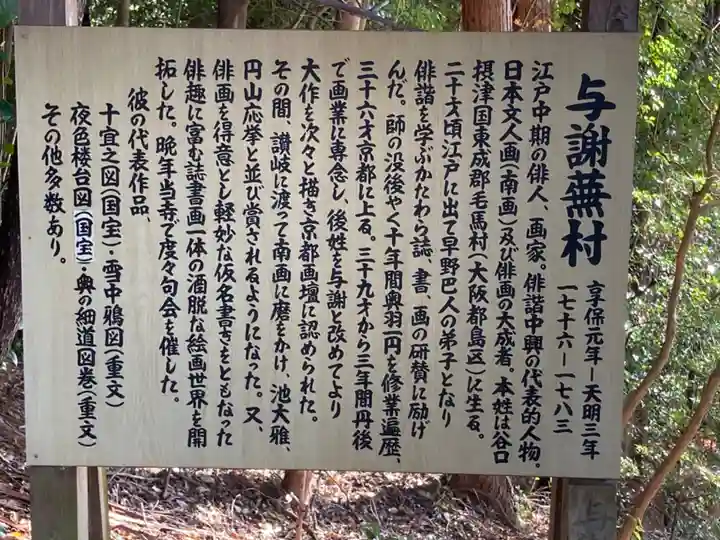 与謝蕪村
享保元年ー天明三年
一七十六ー一七八三
江戸中期の俳人、画家。俳諧中興の代表的人物。
日本文人画(南画)及び俳画の大成者。本姓は谷口
摂津国東成郡毛馬村(大阪都島区)に生る。
二十才頃江戸に出て早野巴人の弟子となり
俳諧を学ぶかたわら誌、書、画の研賛に励げ
んだ。師の没後やく十年間奥羽一円を修業遍歴、
三十六才京都に上る。三十九才から三年間丹後
で画業に専念し、後姓を与謝と改めてより
大作を次々と描き京都画壇に認められた。
その間、讃岐に渡って南画に磨をかけ、池大雅、
円山応挙と並び賞されるようになった。又、
俳画を得意とし軽妙な仮名書きをともなった
俳趣に富む誌書画一体の洒脱な絵画世界を開
拓した。晩年当寺で度々句会を催した。
彼の代表作品、
十宜之図(国宝)・雪中鴉図(重文)
夜色楼台図(国宝)・奥の細道図巻(重文)
その他多数あり。